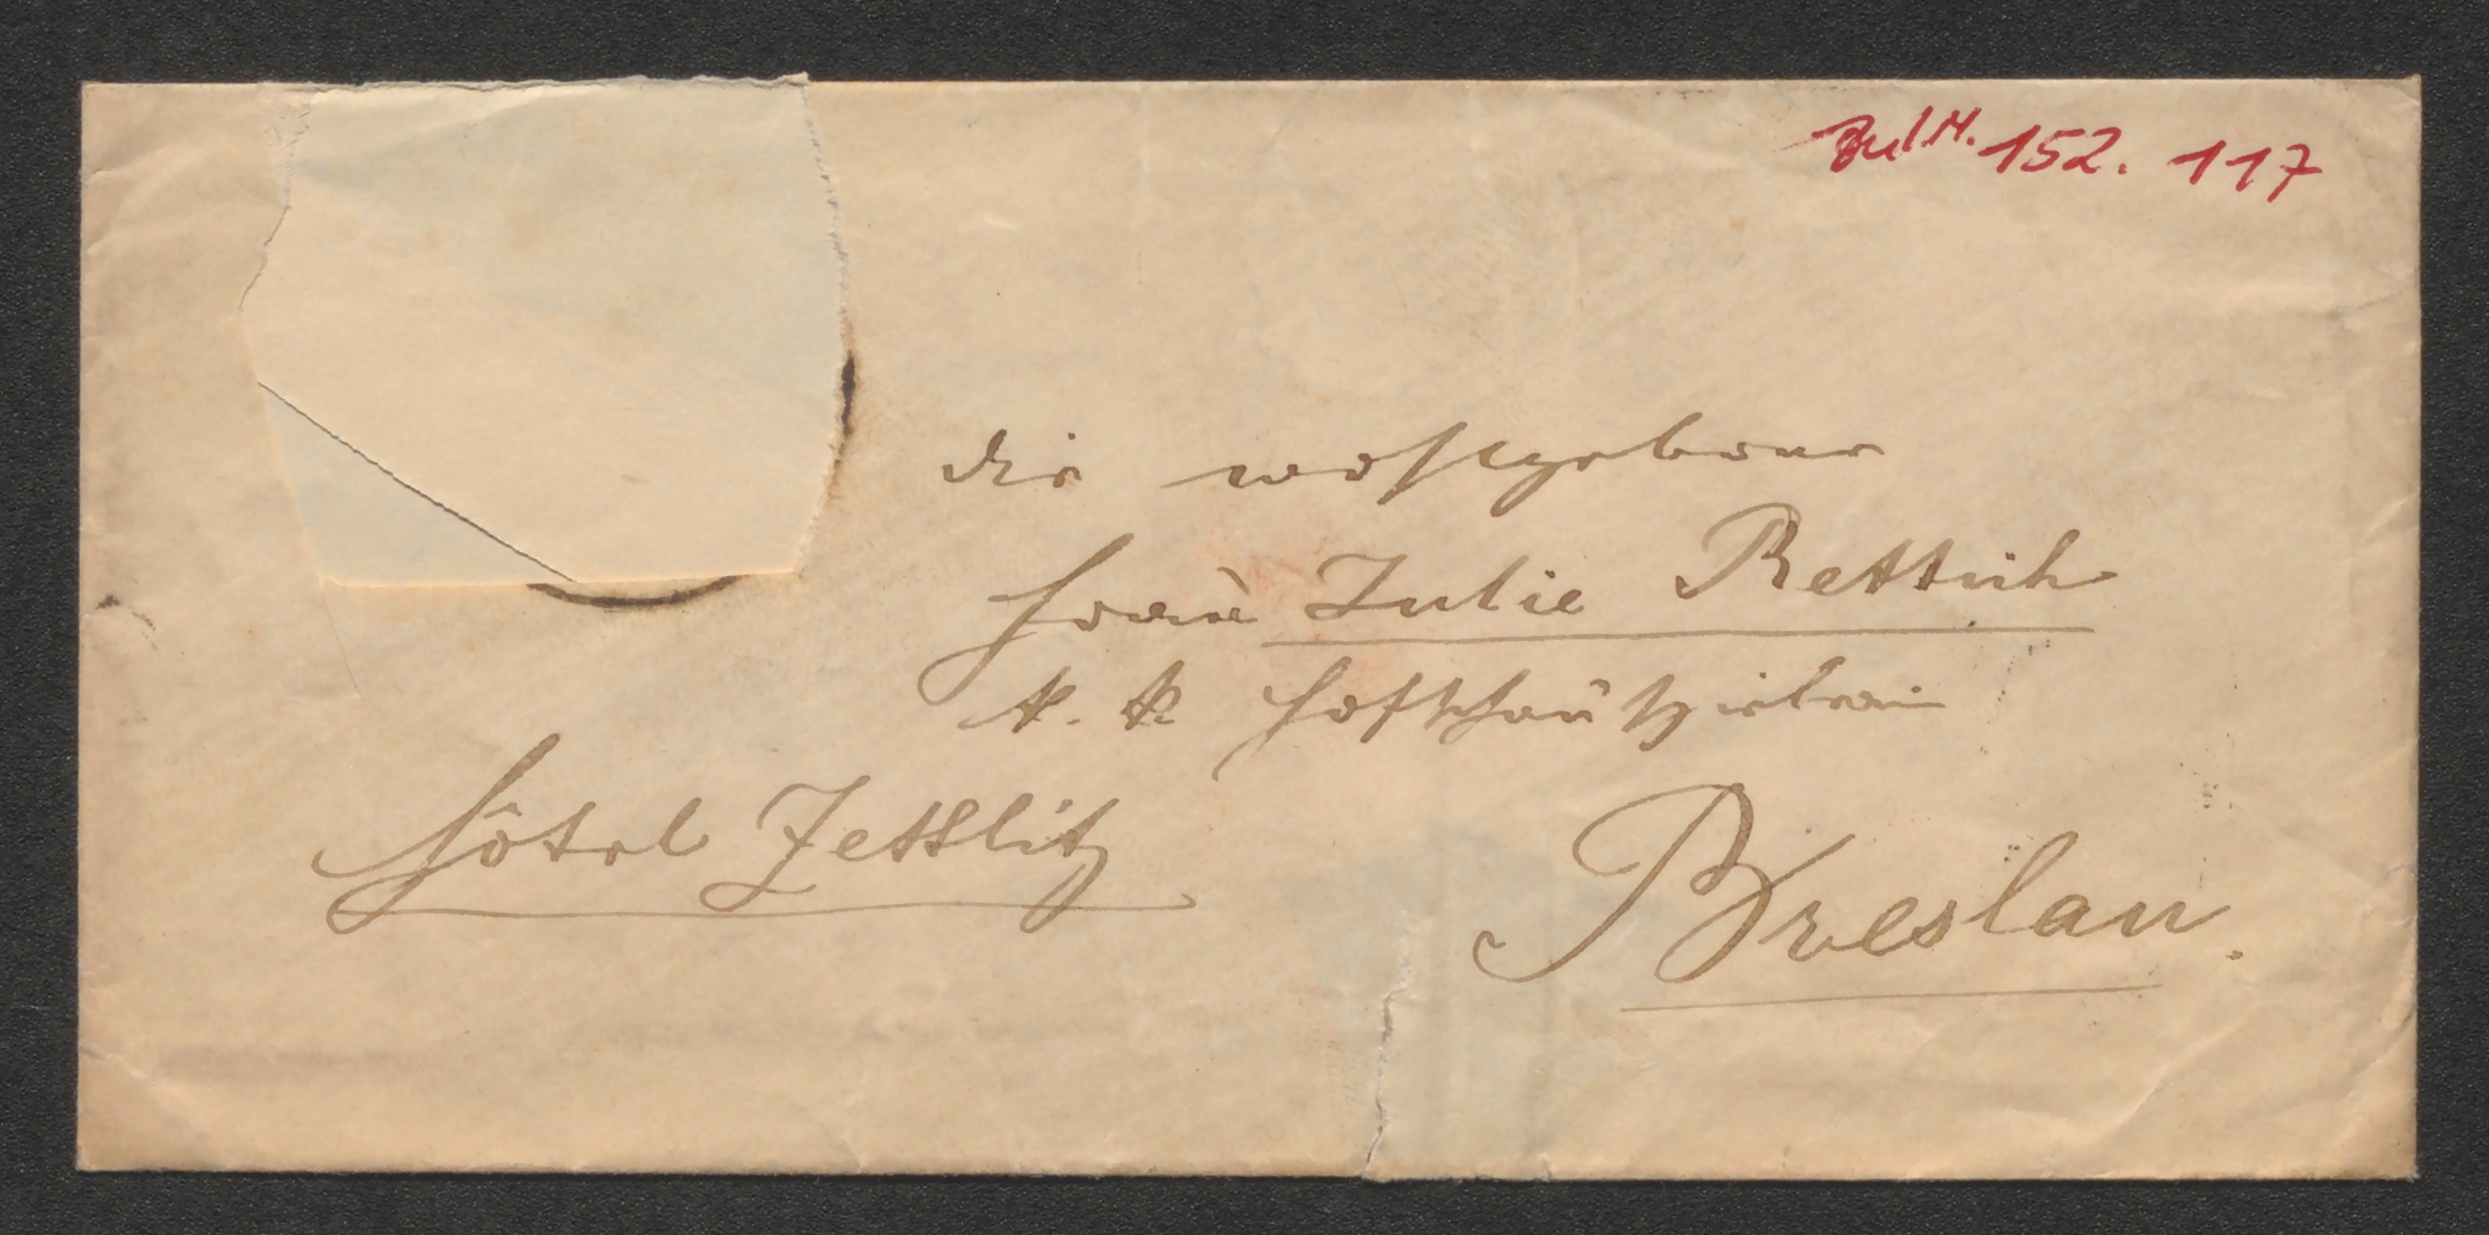 Zu I.N. 152.117
die wohlgeborne
Frau Julie Rettich
k. k Hofschauspielerin
Hôtel Zettlitz
Breslau.